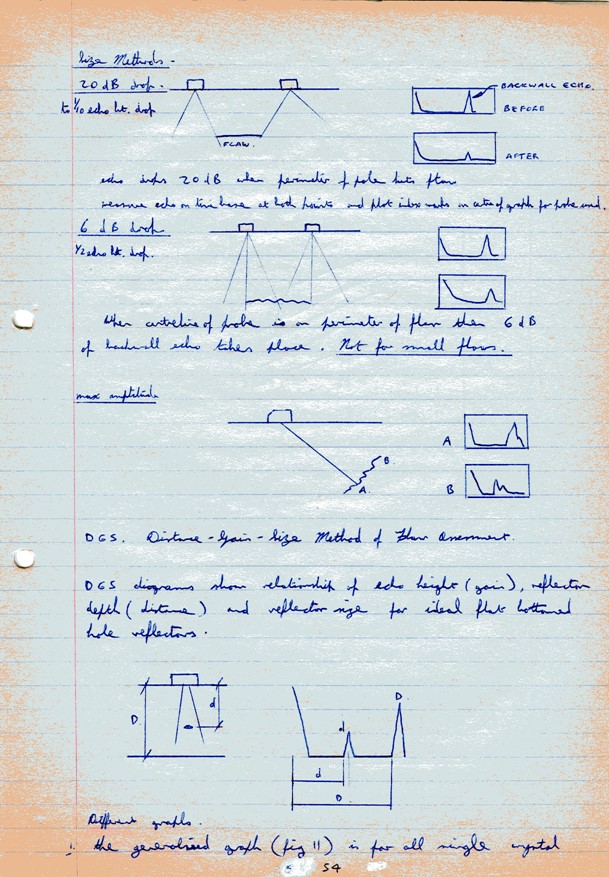 Size Methods -
20 dB drop.
to 1/10 echo ht. drop
FLAW.
BACKWALL ECHO.
BEFORE
AFTER
echo drops 20 dB when perimeter of probe hits flaw
measure echo on time base at both points and plot index marks on centre of graph for probe used.
6 dB drop
1/2 echo ht. drop.
When centreline of probe is on perimeter of flaw then 6 dB
of backwall echo takes place. Not for small flaws.
max amplitude
A
B.
A.
B
D G S. Distance - Gain - Size Method of Flaw Assessment.
DGS diagrams show relationship of echo height (gain), reflector
depth (distance) and reflector size for ideal flat bottomed
hole reflectors.
D
d
D.
d
d
D
Different graphs.
1. the generalised graph (fig 11) is for all single crystal
54